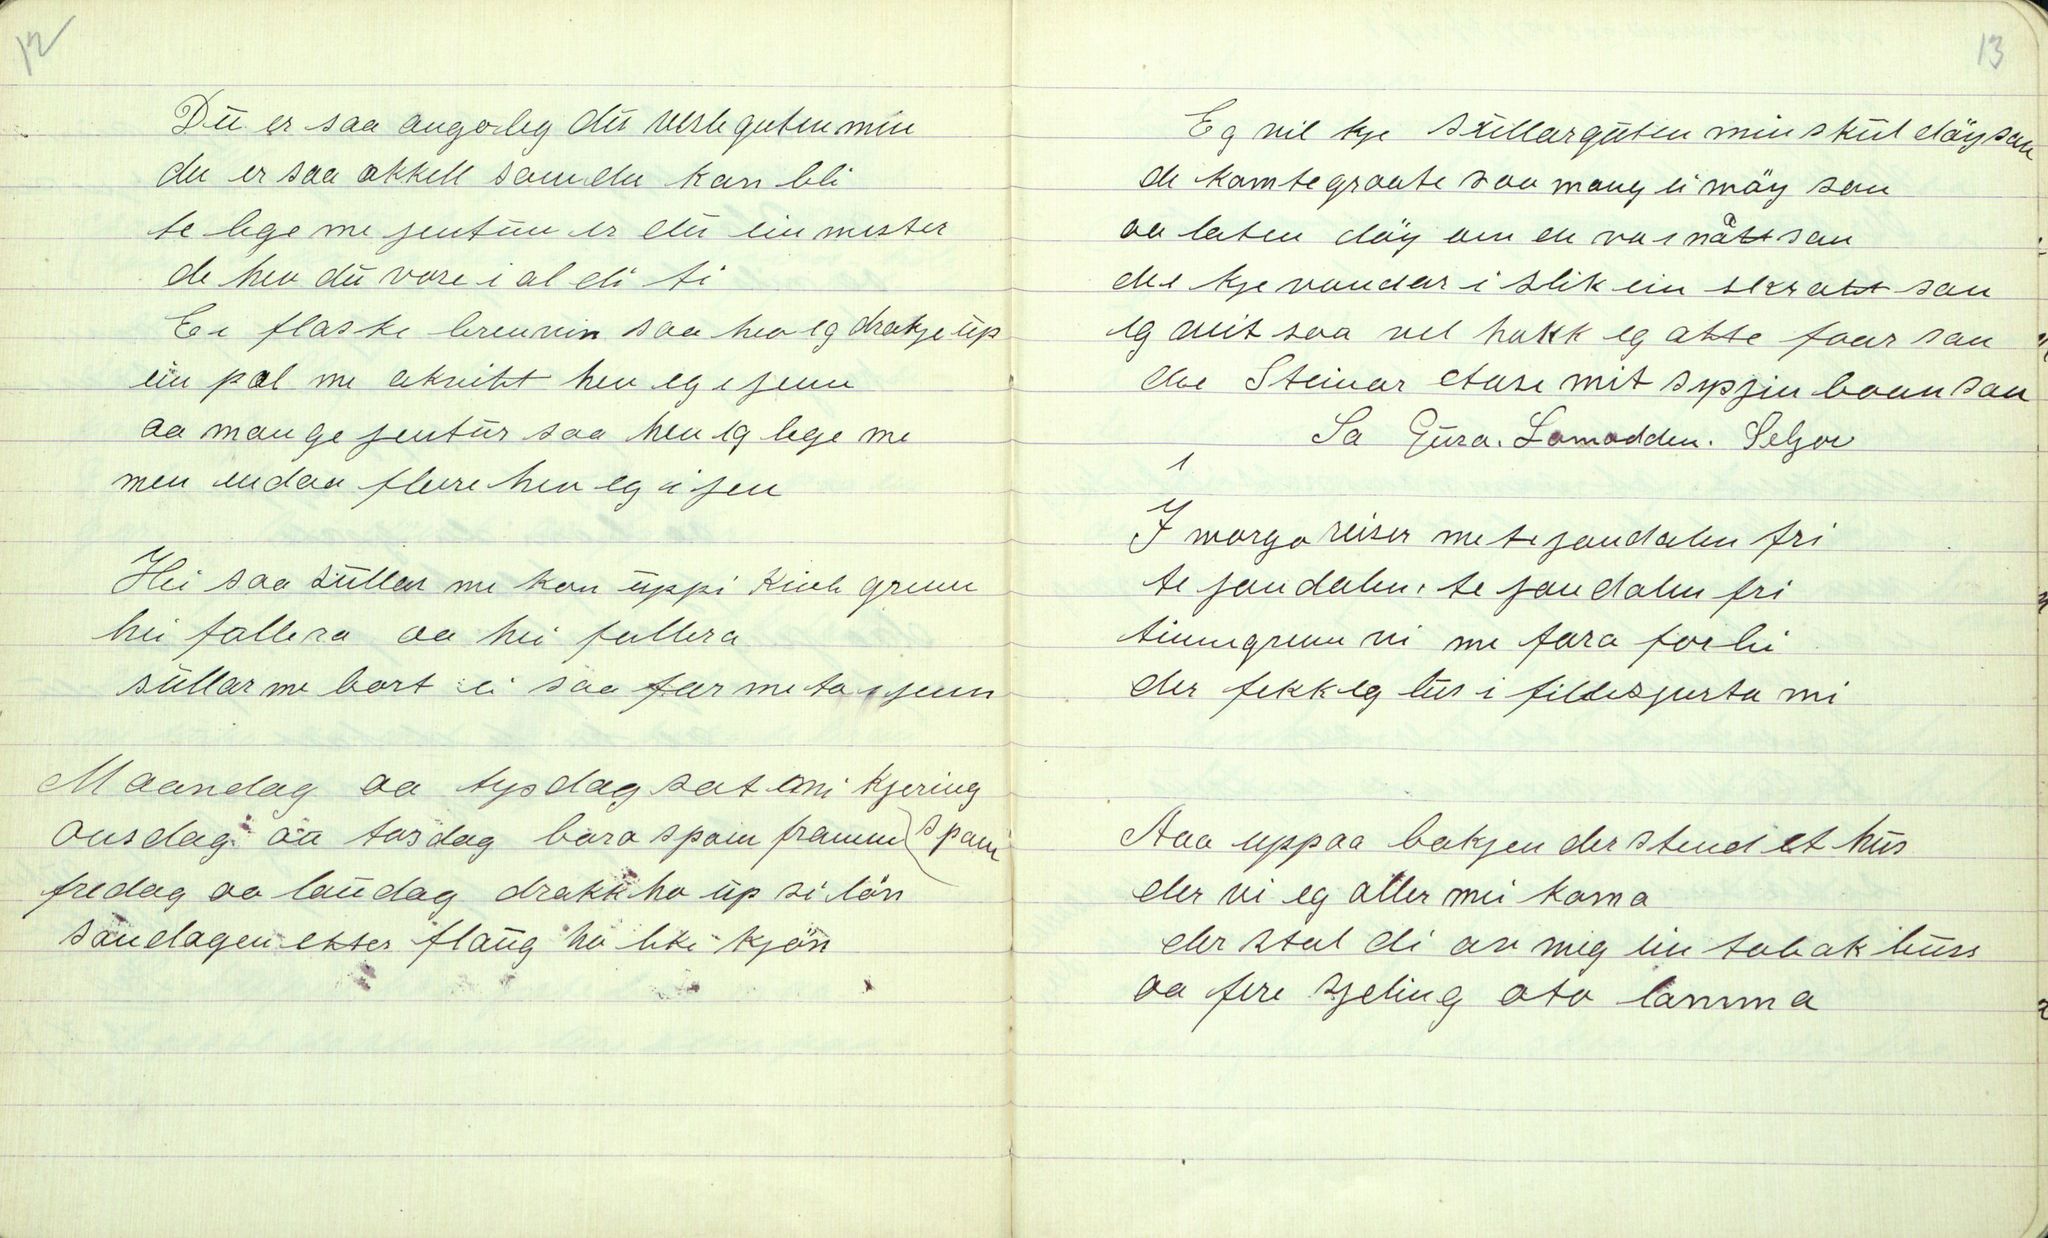 12
Dü er saa augoleg dü vesle guten min
du er saa okkell som du kan bli
te lege me jentun er dü ein mester
de hev dü vore i al di ti
Ei flaske brennvin saa hev eg drakje üp
ein pæl me akvitt hev eg igjenn
aa mange jentür saa hev eg lege me
men endaa fleire hev eg igjen
Hei saa süllar me kon üppi Kinle grenn
hei fallera aa hei fallera
süllar me bort ei saa fær me to igjenn
Maandag aa tysdag sat mi Kjering
onsdag aa torsdag bara spoin framm (spann
fredag aa laudag drakk ho üp si lön
söndagen etter flaug ho like kjön
13
Eg vil kje süllarguten min skül döy san
de kom te graate saa mang ei möy san
aa laten döy om en var nått san
de kje vondar i slik ein skratt san
eg veit saa vel hokk eg atte faar san
dæ Steinar etase mit syjin baan san
Sa Gura. Lomodden. Seljor
1
I morgo reiser me te jondalen fri
te jondalen, te jondalen fri
tinnegrenn vi me fara forbi
der fekk eg lus i fillesjorta mi
Aaa uppaa bakjen der stend et hüs
der vi eg aller mei koma
der stal di av meg ein tobak buss
aa fire sjeling ato lomma